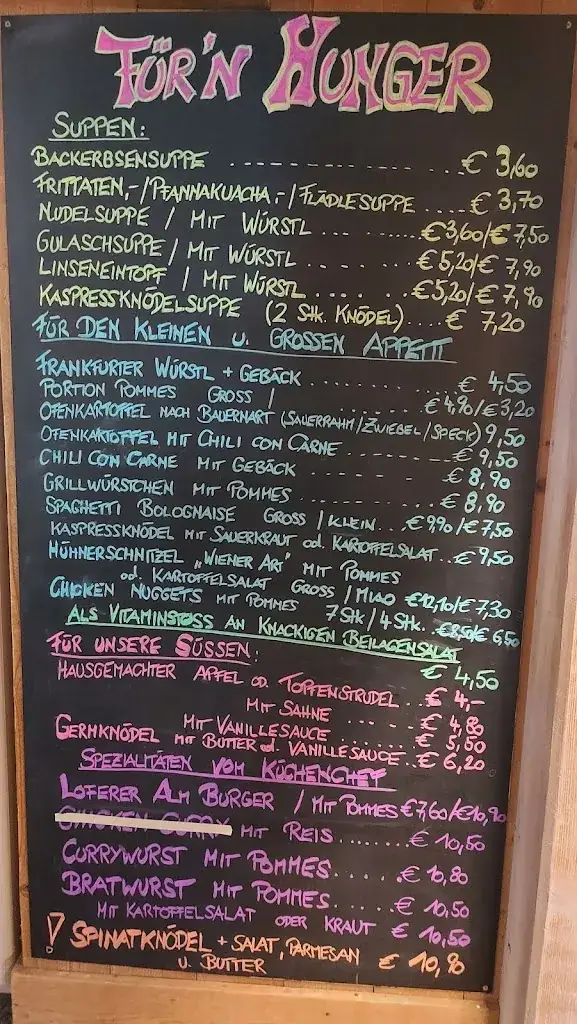 FÜR'N HUNGER
SUPPEN:
BACKERBSENSUPPE ............ € 3,60
FRITTATEN,-/PFANNAKUACHA,-/FLÄDLESUPPE .... € 3,70
NUDELSUPPE / MIT WÜRSTL ........ €3,60/€ 7,50
GULASCHSUPPE / MIT WÜRSTL ........ €5,20/€ 7,90
LINSENEINTOPF / MIT WÜRSTL ..... €5,20/€ 7,90
KASPRESSKNÖDELSUPPE (2 STK. KNÖDEL).... € 7,20
FÜR DEN KLEINEN U. GROSSEN APPETIT
FRANKFURTER WÜRSTL + GEBÄCK ............ € 4,50
PORTION POMMES GROSS / € 4,90/€3,20
OFENKARTOFFEL NACH BAUERNART (SAUERRAHM/ZWIEBEL/SPECK) 9,50
OFENKARTOFFEL MIT CHILI CON CARNE ........ € 9,50
CHILI CON CARNE MIT GEBÄCK ........ € 8,90
GRILLWÜRSTCHEN MIT POMMES ........... € 8,90
SPAGHETTI BOLOGNAISE GROSS / KLEIN...€ 9,90/€ 7,50
KASPRESSKNÖDEL MIT SAUERKRAUT od. KARTOFFELSALAT...€ 9,50
HÜHNERSCHNITZEL „WIENER ART" MIT POMMES
od. KARTOFFELSALAT GROSS / MIAO €12,10/€ 7,30
CHICKEN NUGGETS MIT POMMES 7 Stk/4 Stk. €8,50/€ 6,50
ALS VITAMINSTOSS AN KNACKIGEN BEILAGENSALAT
€ 4,50
FÜR UNSERE SÜSSEN:
HAUSGEMACHTER APFEL OD. TOPFENSTRUDEL... € 4,-
MIT SAHNE .... € 4,80
MIT VANILLESAUCE ........ € 5,50
GERMKNÖDEL MIT BUTTER od. VANILLESAUCE.. € 6,20
SPEZIALITÄTEN VOM KÜCHENCHEF
LOFERER ALM BURGER / MIT POMMES €7,60/€10,90
CHICKEN CURRY MIT REIS ....... € 10,50
CURRYWURST MIT POMMES..... € 10,80
BRATWURST MIT POMMES..... € 10,50
MIT KARTOFFELSALAT ODER KRAUT € 10,50
! SPINATKNÖDEL + SALAT, PARMESAN € 10,90
U. BUTTER